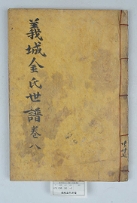 義城金氏世譜 卷八